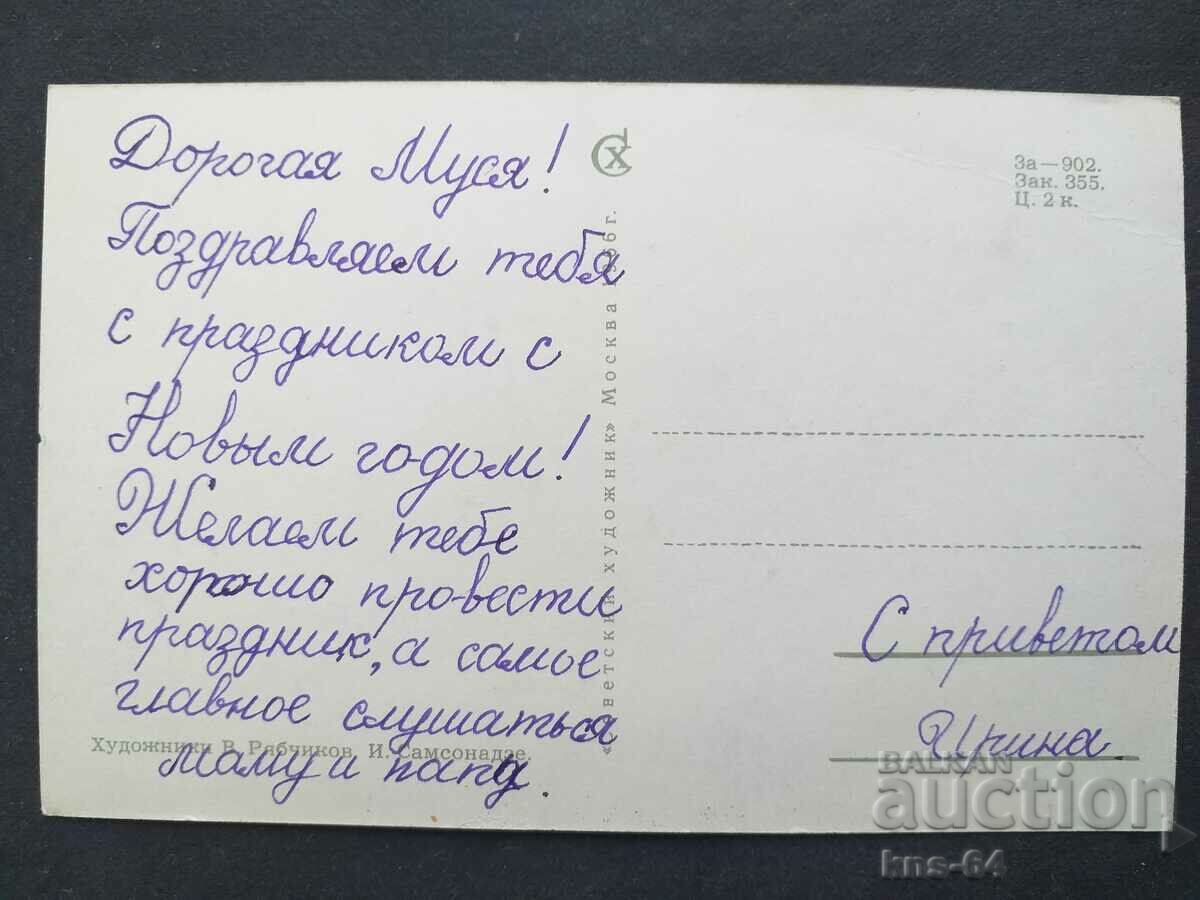 Дорогая Муся!
Поздравляем тебя
с праздником с
Новым годом!
Желаем тебе
хорошо провести
праздник, а самое
главное слушаться
маму и папу.
Художники В. Рябчиков, И. Самсонадзе.
«Советский художник» Москва 1966 г.
СХ
За—902.
Зак. 355.
Ц. 2 к.
С приветом
Ирина
BALKAN
auction
kns-64